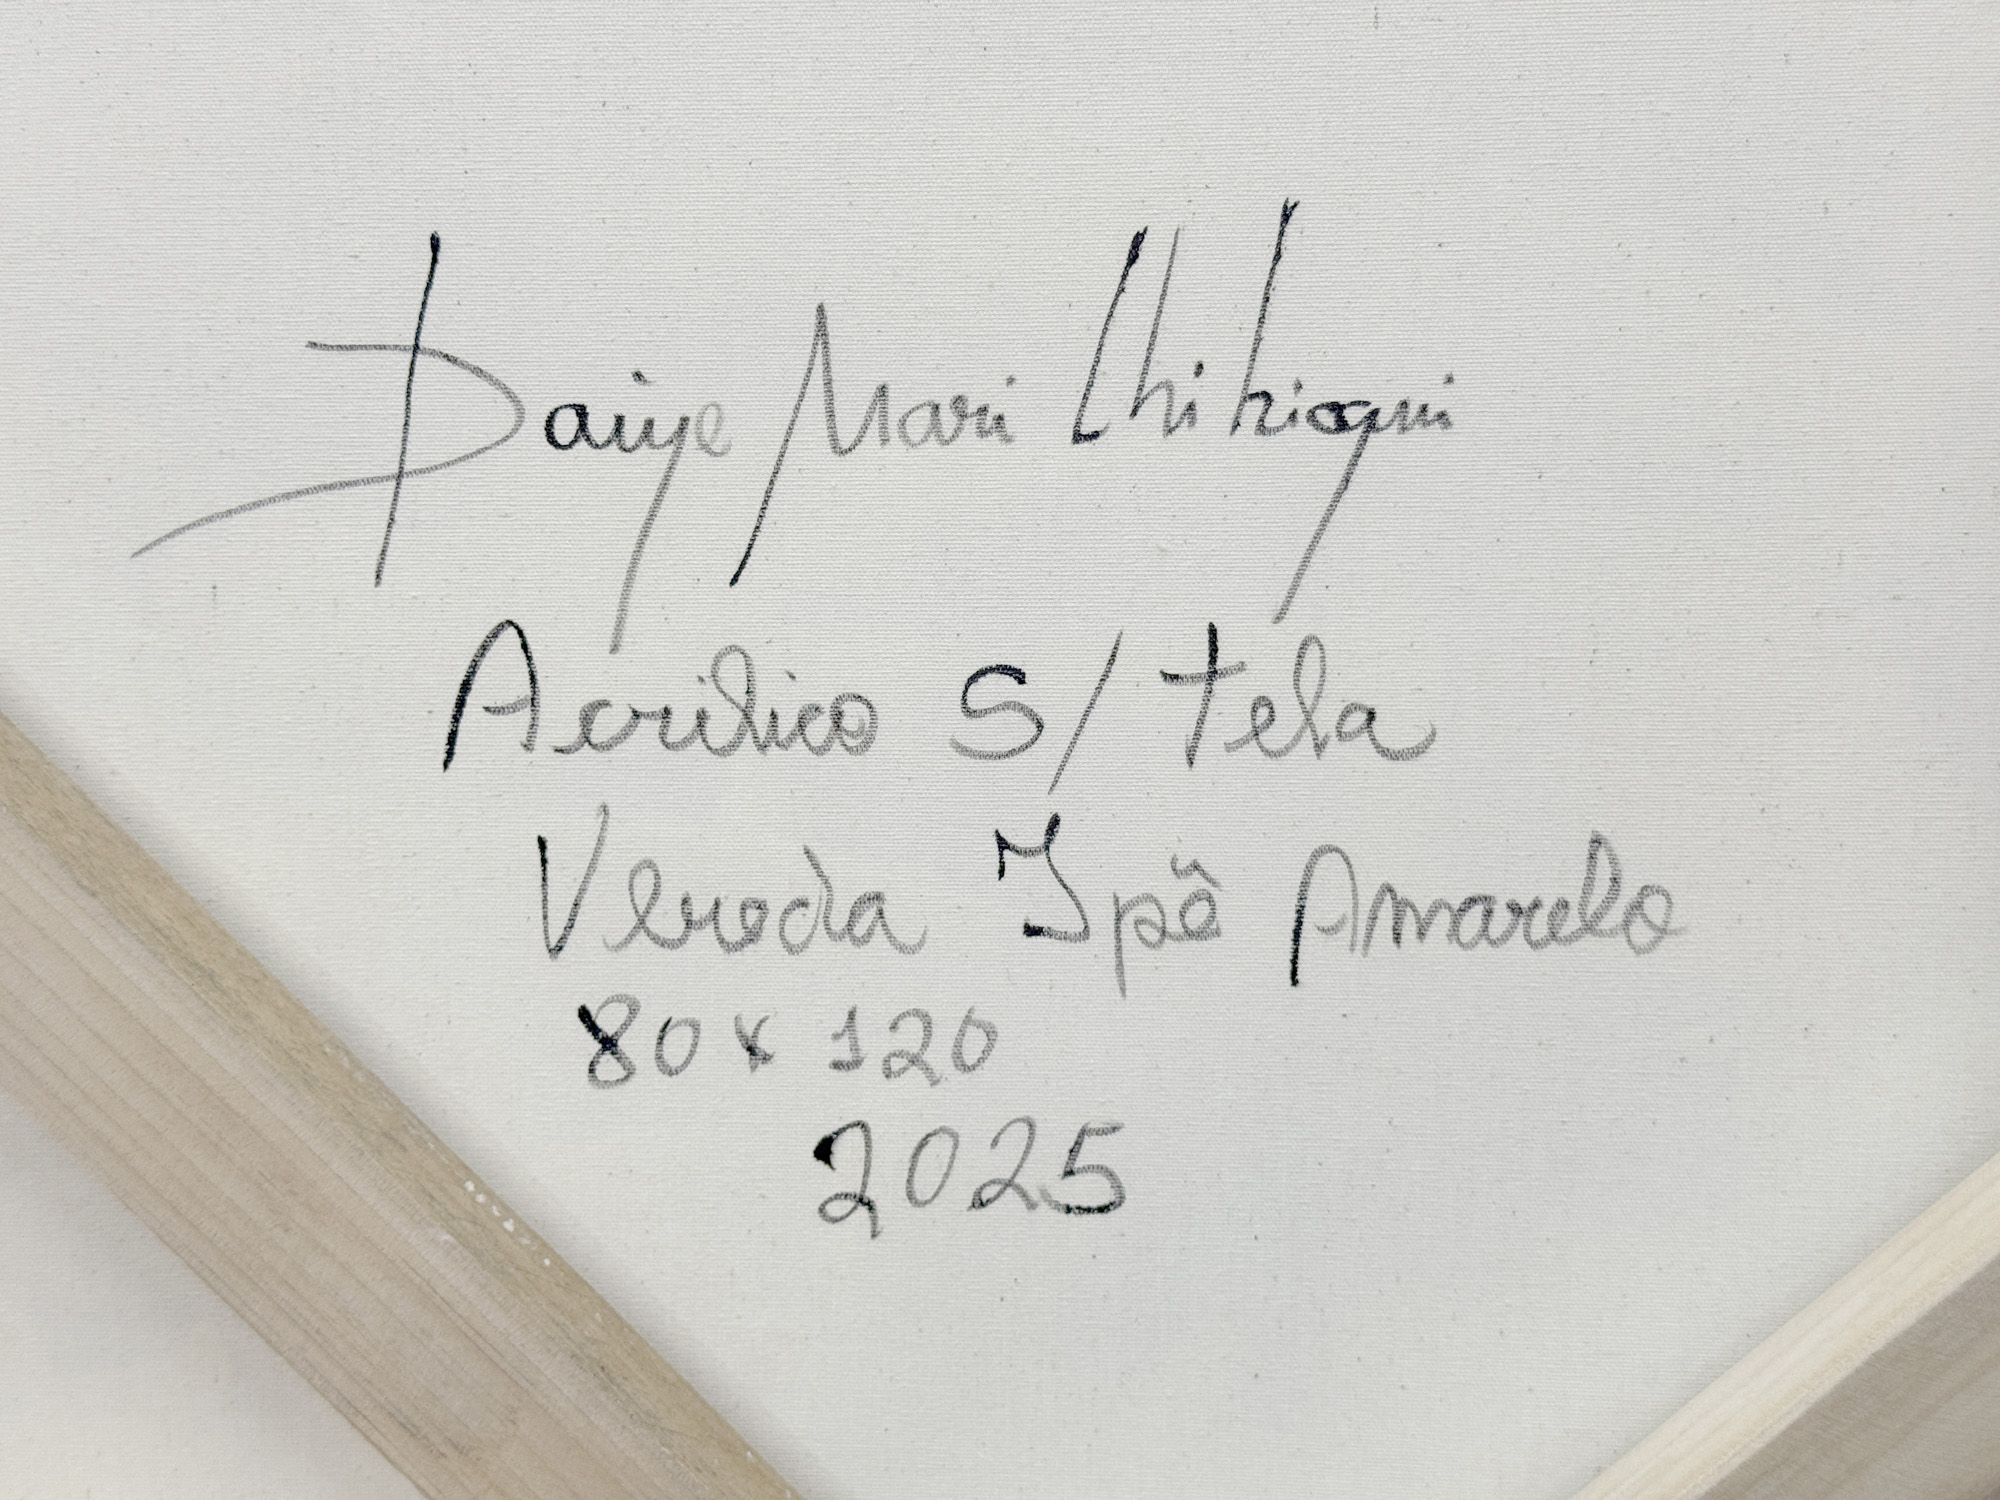 Daiye Mari Chihioqui
Acrilico S/ tela
Vereda Ipê Amarelo
80 x 120
2025